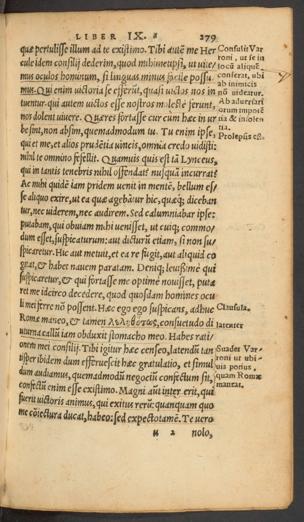 LIBER IX. 279
quæ pertulisse illum ad te existimo. Tibi autē me Her
cule idem consilij dederim, quod mihimetipsi, ut uite/
mus oculos hominum, si linguas minus facile possu/
mus. Qui enim victoria se efferūt, quasi uictos nos in
tuentur. qui autem victos esse nostros molestè ferunt,
nos dolent uiuere. Quæres fortasse cur cum hæc in ur
be sint, non absim, quemadmodum tu. Tu enim ipse,
qui et me, et alios prudētia uincis, omnia credo uidisti:
nihil te omnino fefellit. Quamuis quis est tā Lynceus,
qui in tantis tenebris nihil offendat? nusquā incurrat?
Ac mihi quidē iam pridem uenit in mentē, bellum es/
se aliquo exire, ut ea quæ agebātur hic, quæq; diceban
tur, nec uiderem, nec audirem. Sed calumniabar ipse:
putabam, qui obuiam mihi uenisset, ut cuiq; commo/
dum esset, suspicaturum: aut dicturū etiam, si non su/
spicaretur. Hic aut metuit, et ea re fugit, aut aliquid co
gitat, & habet nauem paratam. Deniq; leuissimè qui
suspicaretur, & qui fortasse me optimè nouisset, puta
ret me idcirco decedere, quod quosdam homines ocu
li mei ferre nō possent. Hæc ego ego suspicans, adhuc
Romæ maneo, & tamen λεληθότως, consuetudo di
uturna callū iam obduxit stomacho meo. Habes rati/
onem mei consilij. Tibi igitur hæc censeo, latendū tan
tisper ibidem dum efferuescit hæc gratulatio, et simul
dum audiamus, quemadmodū negociū confectum sit,
confectū enim esse existimo. Magni aūt inter erit, qui
fuerit victoris animus, qui exitus rerū: quanquam quo
me cōiectura ducat, habeo: sed expecto tamē. Te uero
2 nolo,
Consulit Var
roni, ut se in
locū aliquē
conferat, ubi
ab inimicis
nō uideatur.
Prolepsis est.
Clausula.
latenter
Suadet Var/
roni ut ubi/
uis potius,
quam Romæ
maneat.